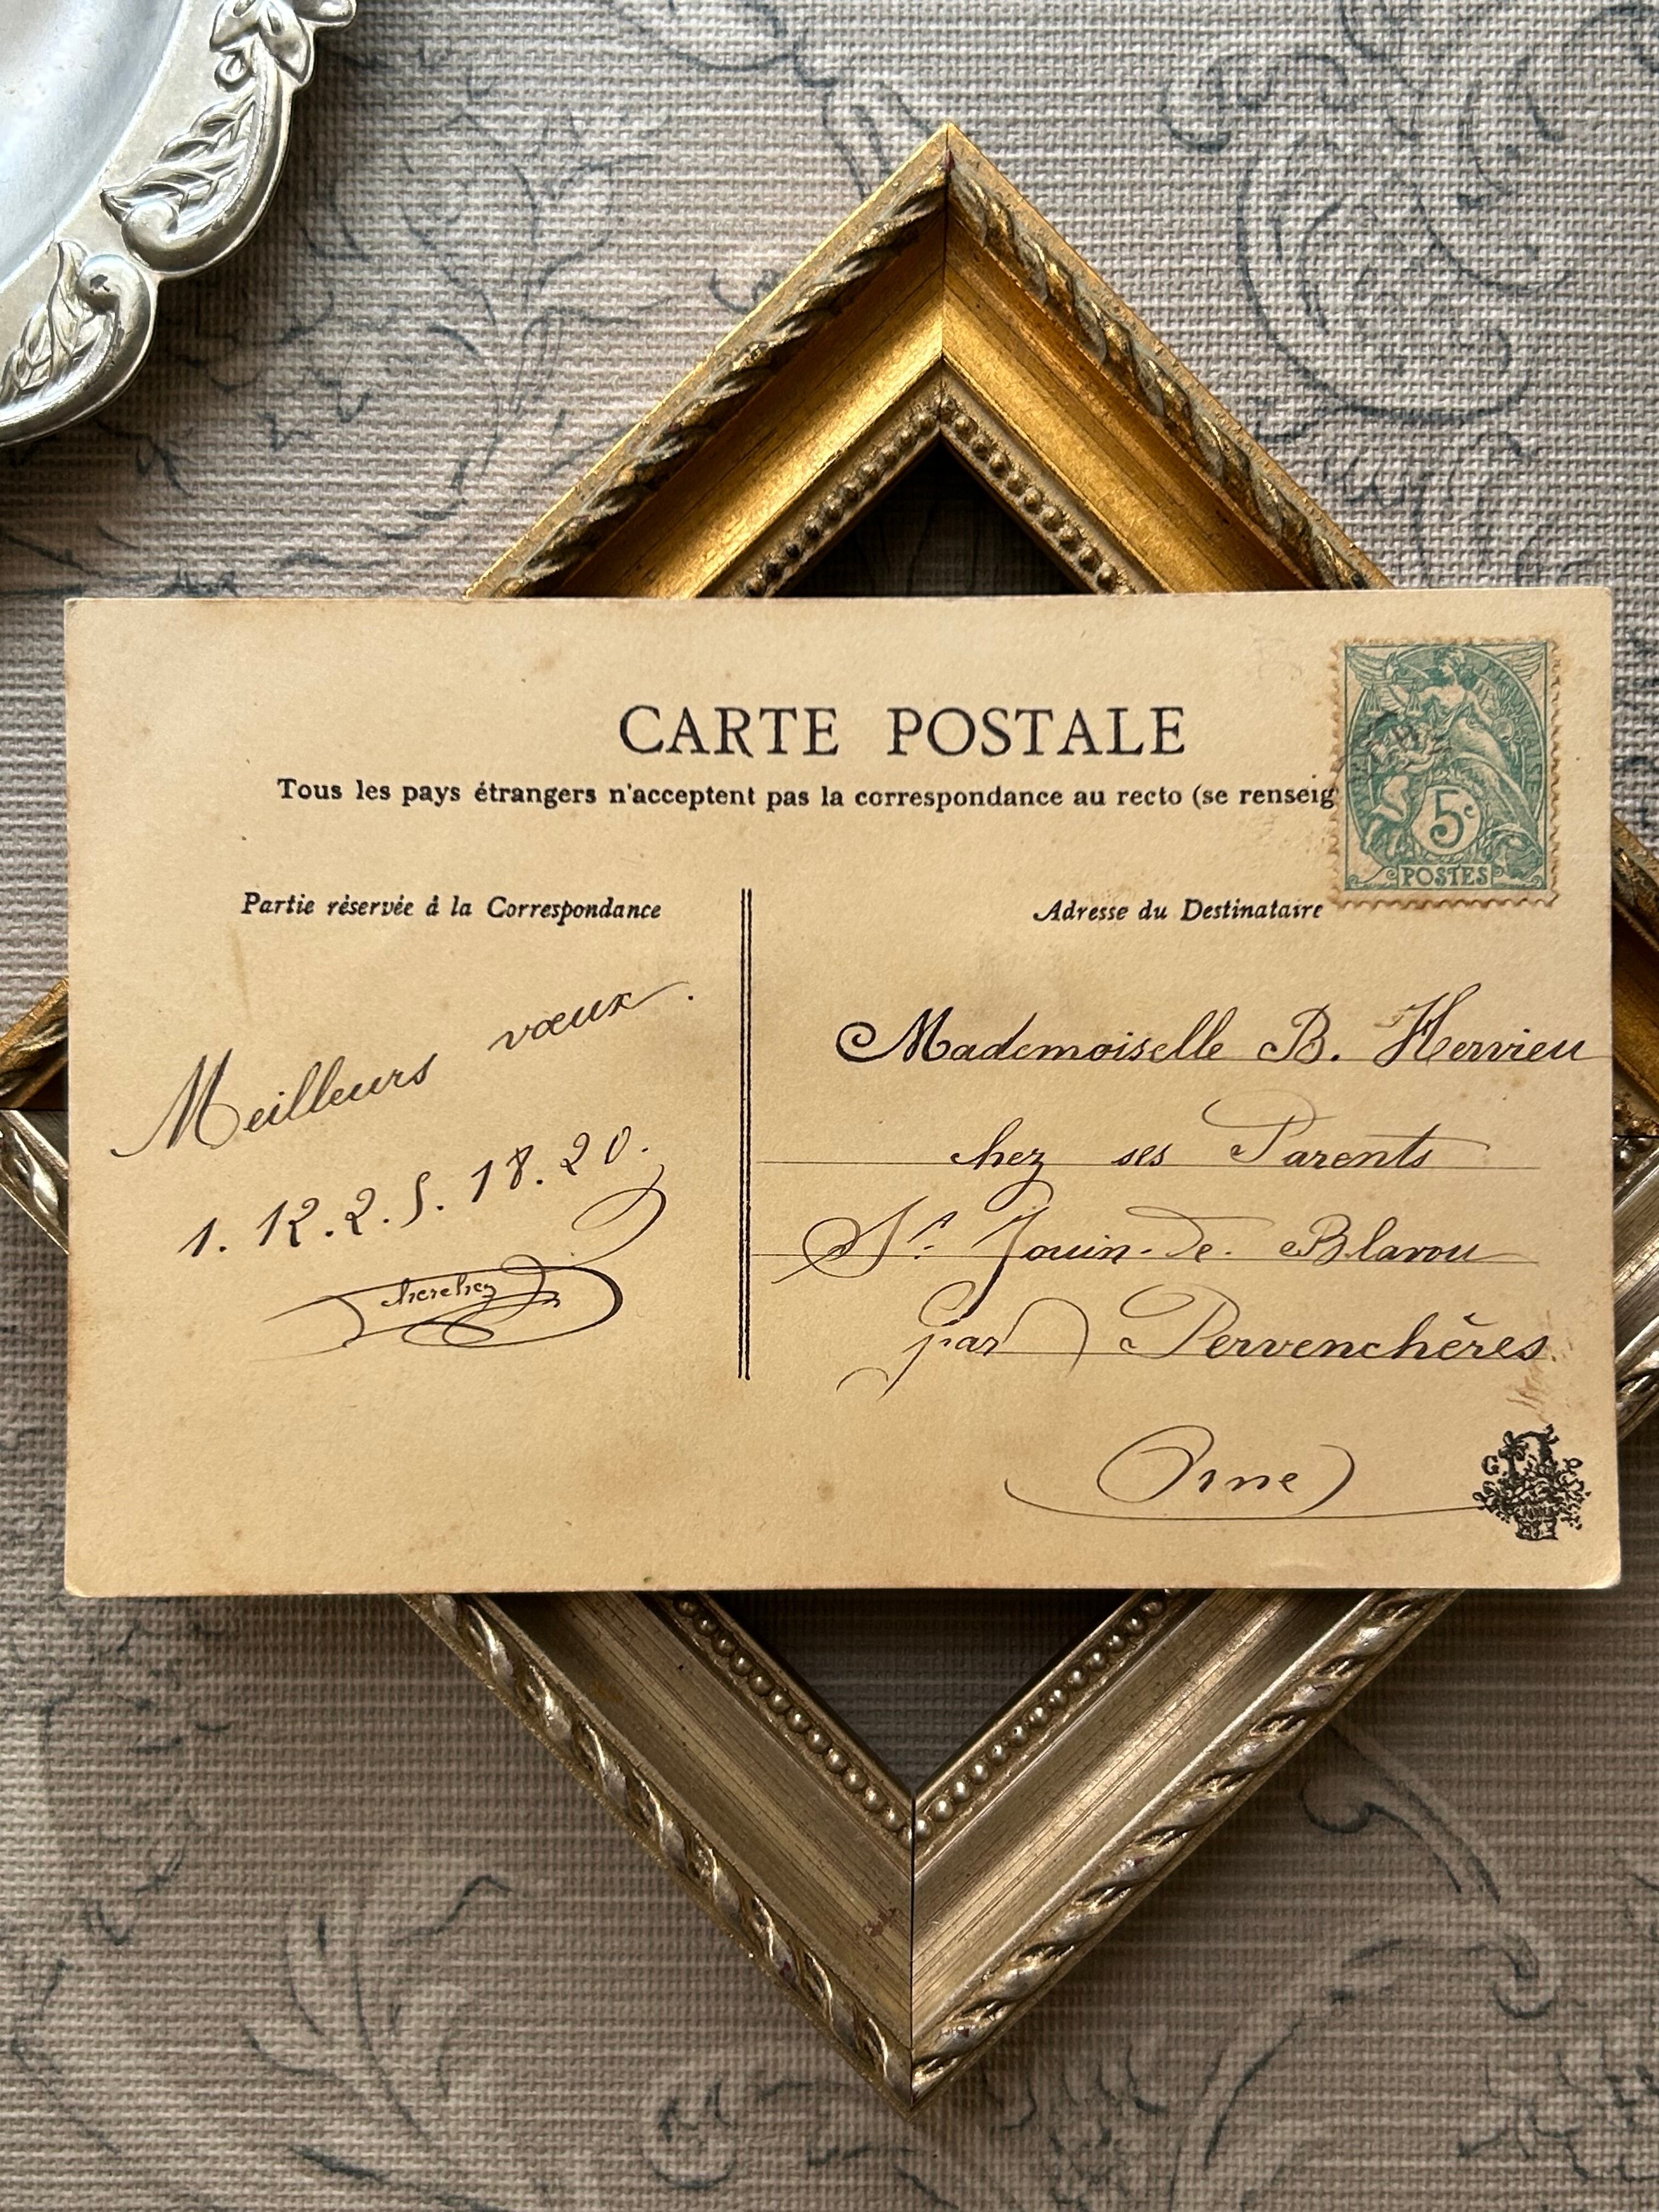 CARTE POSTALE
Tous les pays étrangers n'acceptent pas la correspondance au recto (se renseig
5c
POSTES
Partie réservée à la Correspondance
Meilleurs vœux.
1. 12. 2. 5. 18. 20.
cherchez
Adresse du Destinataire
Mademoiselle B. Hervieu
chez ses Parents
St. Jouin-de-Blavou
par Pervenchères
Orne
G P